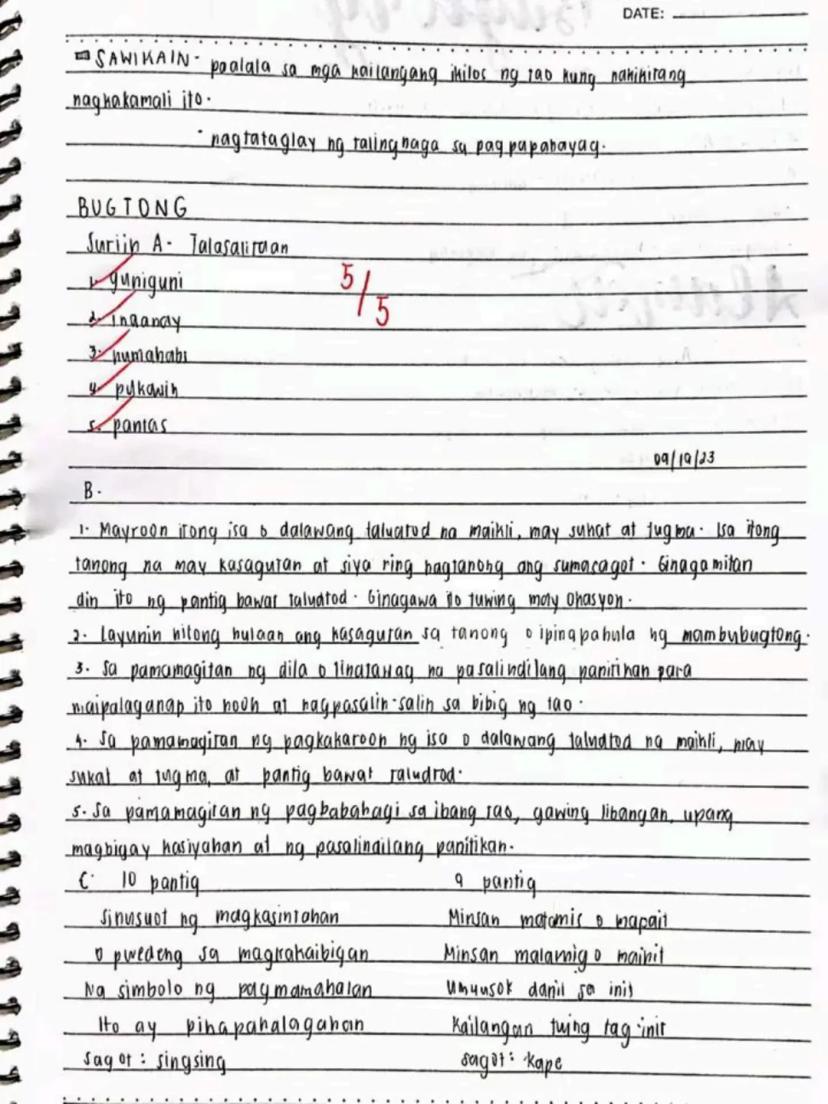 DATE:
SAWIKAIN - paalala sa mga kailangang ikilos ng tao kung nakikitang
nagkakamali ito.
- nagtataglay ng talinghaga sa pagpapahayag.
BUGTONG
Suriin A. Talasalitaan
1. guniguni
5/5
2. inaanay
3. humahabi
4. pukawin
5. pantas
09/19/23
B.
1. Mayroon itong isa o dalawang taludtod na maikli, may sukat at tugma. Isa itong
tanong na may kasagutan at siya ring nagtanong ang sumasagot. Ginagamitan
din ito ng pantig bawat taludtod. Ginagawa ito tuwing may okasyon.
2. Layunin nitong hulaan ang kasagutan sa tanong o ipinapahula ng mambubugtong.
3. Sa pamamagitan ng dila o tinatawag na pasalindilang panitikan para
maipalaganap ito noon at nagpasalin-salin sa bibig ng tao.
4. Sa pamamagitan ng pagkakaroon ng isa o dalawang taludtod na maikli, may
sukat at tugma, at pantig bawat taludtod.
5. Sa pamamagitan ng pagbabahagi sa ibang tao, gawing libangan, upang
magbigay kasiyahan at ng pasalindilang panitikan.
C. 10 pantig
Sinusuot ng magkasintahan
o pwedeng sa magkakaibigan
Na simbolo ng pagmamahalan
Ito ay pinapahalagahan
Sagot : singsing
9 pantig
Minsan matamis o mapait
Minsan malamig o mainit
Umuusok dahil sa init
Kailangan tuing tag-init
Sagot : kape